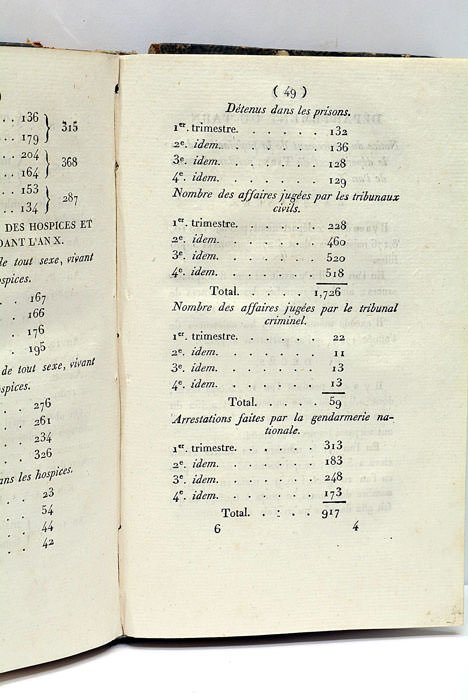 )
. . . 136
. . 179 } 315
. . 204
. . 164 } 368
. . 153
. . 134 } 287
DES HOSPICES ET
DANT L'AN X.
de tout sexe, vivant
ospices.
. . 167
. . 166
. . 176
. . 195
de tout sexe, vivant
ospices.
. . 276
. . 261
. . 234
. . 326
ans les hospices.
. . 23
. . 54
. . 44
. . 42
( 49 )
Détenus dans les prisons.
1er. trimestre. . . . . . 132
2e. idem. . . . . . . 136
3e. idem. . . . . . . 128
4e. idem. . . . . . . 129
Nombre des affaires jugées par les tribunaux
civils.
1er. trimestre. . . . . . 228
2e. idem. . . . . . . 460
3e. idem. . . . . . . 520
4e. idem. . . . . . . 518
Total. . . . . . 1,726
Nombre des affaires jugées par le tribunal
criminel.
1er. trimestre. . . . . . 22
2e. idem. . . . . . . 11
3e. idem. . . . . . . 13
4e. idem. . . . . . . 13
Total. . . . . 59
Arrestations faites par la gendarmerie na-
tionale.
1er. trimestre. . . . . . 313
2e. idem. . . . . . . 183
3e. idem. . . . . . . 248
4e. idem. . . . . . . 173
Total. . . . . 917
6 4